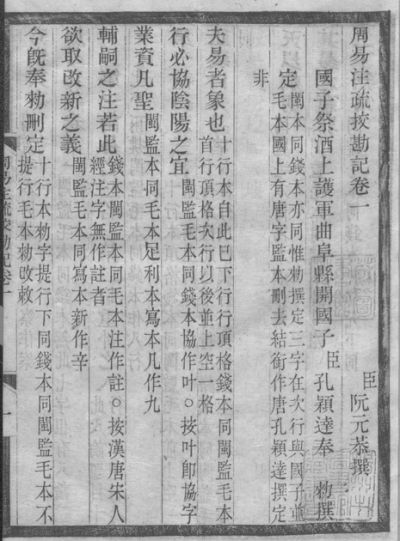 周易注疏挍勘記卷一
臣阮元恭撰
國子祭酒上護軍曲阜縣開國子臣孔穎達奉 勑撰
定
閩本同錢本亦同惟勑撰定三字在次行與國子並
毛本國上有唐字監本刪去結銜作唐孔穎達撰定
非
夫易者象也
十行本自此已下行行頂格錢本同閩監毛本
首行頂格次行以後並上空一格
行必協陰陽之宜
閩監毛本同錢本協作叶○按叶卽協字
業資凡聖
閩監本同毛本足利本寫本凡作九
輔嗣之注若此
錢本閩監本同毛本注作註○按漢唐宋人
經注字無作註者
欲取改新之義
閩監毛本同寫本新作辛
今旣奉勑刪定
十行本勑字提行下同錢本同閩監毛本不
提行毛本勑改敕
周易注疏挍勘記卷一
一